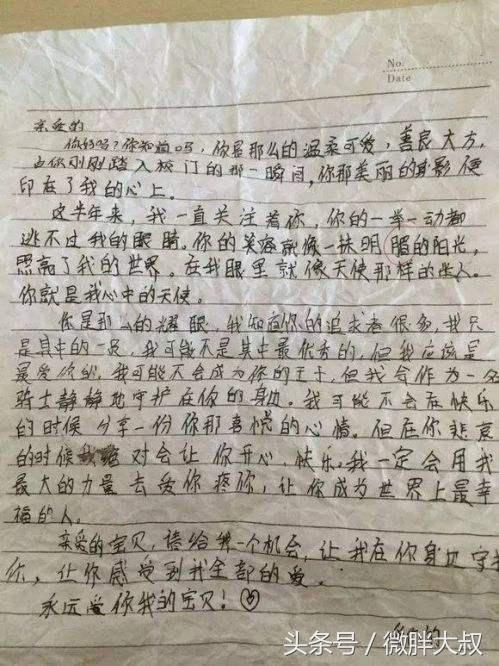 No.
Date
亲爱的
你好吗?你知道吗,你是那么的温柔可爱,善良大方,
当你刚刚踏入校门的那一瞬间,你那美丽的身影便
印在了我的心上。
这半年来,我一直关注着你,你的一举一动都
逃不过我的眼睛。你的笑容就像一抹明眉的阳光,
照亮了我的世界。在我眼里就像天使那样的迷人。
你就是我心中的天使。
你是那么的耀眼,我知道你的追求者很多,我只
是其中的一员,我可能不是其中最优秀的,但我应该是
最爱你的,我可能不会成为你的王子,但我会作为一名
骑士静静地守护在你的身边。我可能不会在快乐
的时候分享一份你那喜悦的心情。但在你悲哀
的时候我绝对会让你开心、快乐。我一定会用我
最大的力量去爱你疼你,让你成为世界上最幸
福的人。
亲爱的宝贝,请给我一个机会,让我在你身边守护
你,让你感受到我全部的爱。
永远爱你我的宝贝!
头条号/微胖大叔